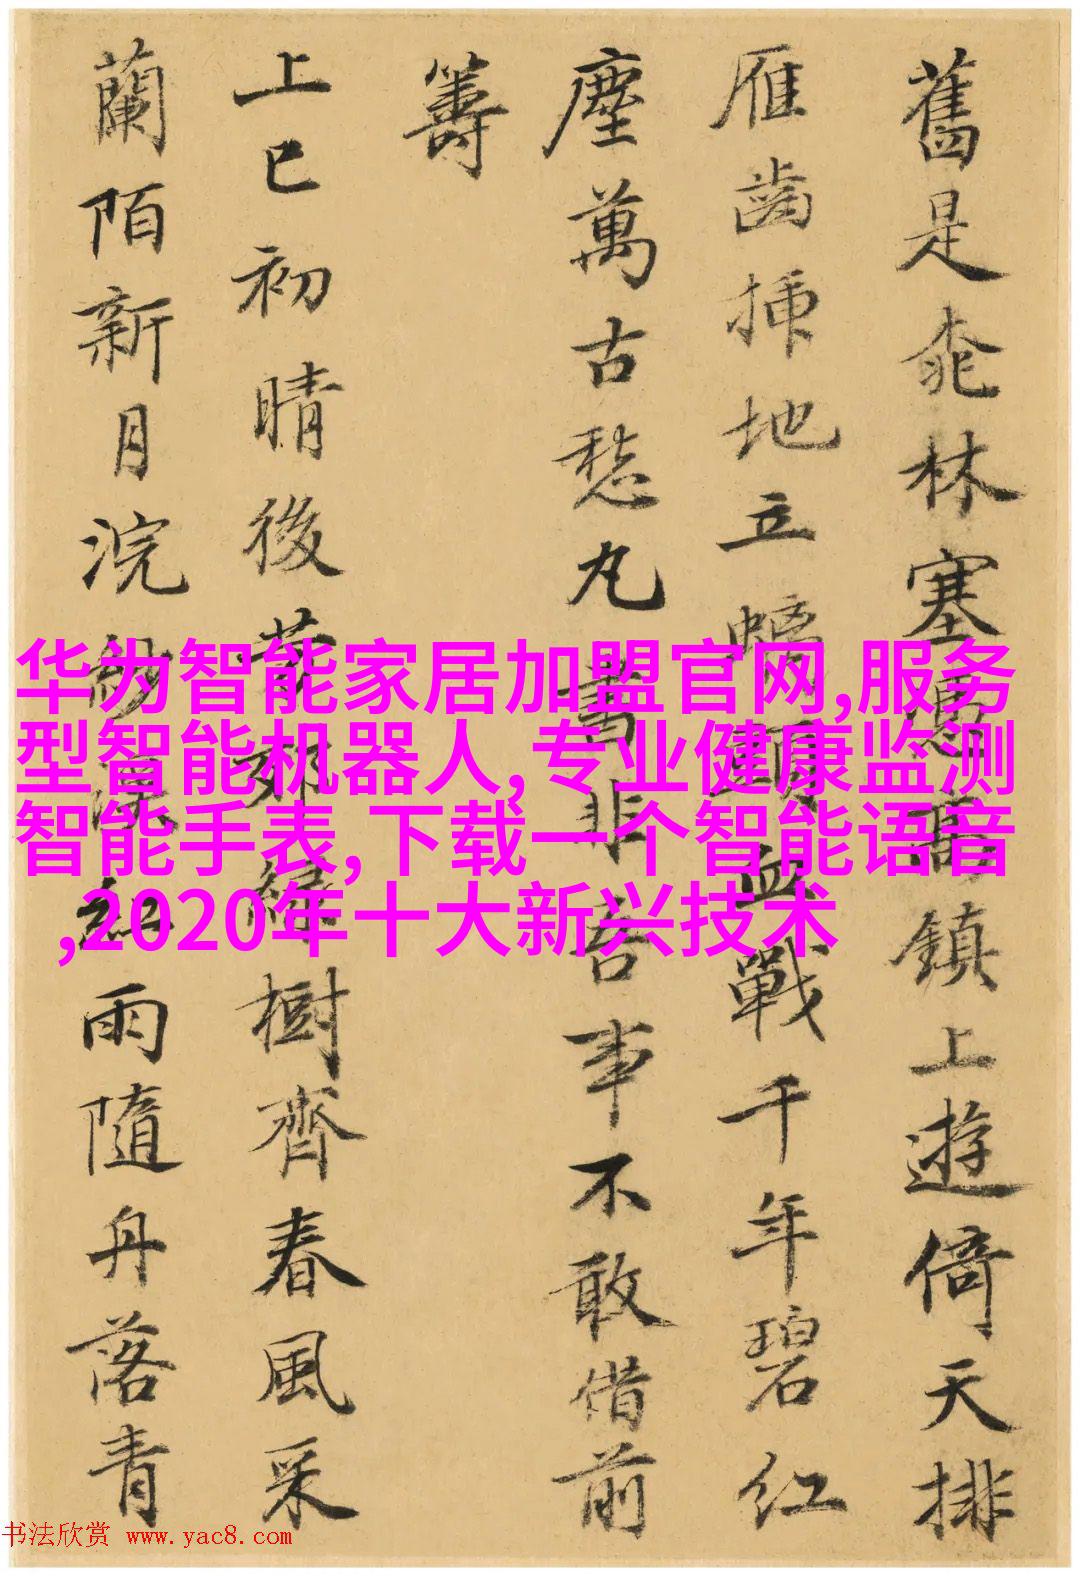 舊是桃林塞憑高鎮上遊倚天排
雁齒插地立螭頭血戰千年碧紅
塵萬古愁丸書非吾事不敢借前
籌
上巳初晴後芳郊綠樹齊春風采
蘭陌新月浣紗溪紅雨隨舟落青
华为智能家居加盟官网,服务
型智能机器人,专业健康监测
智能手表,下载一个智能语音
,2020年十大新兴技术
书法欣赏 www.yac8.com